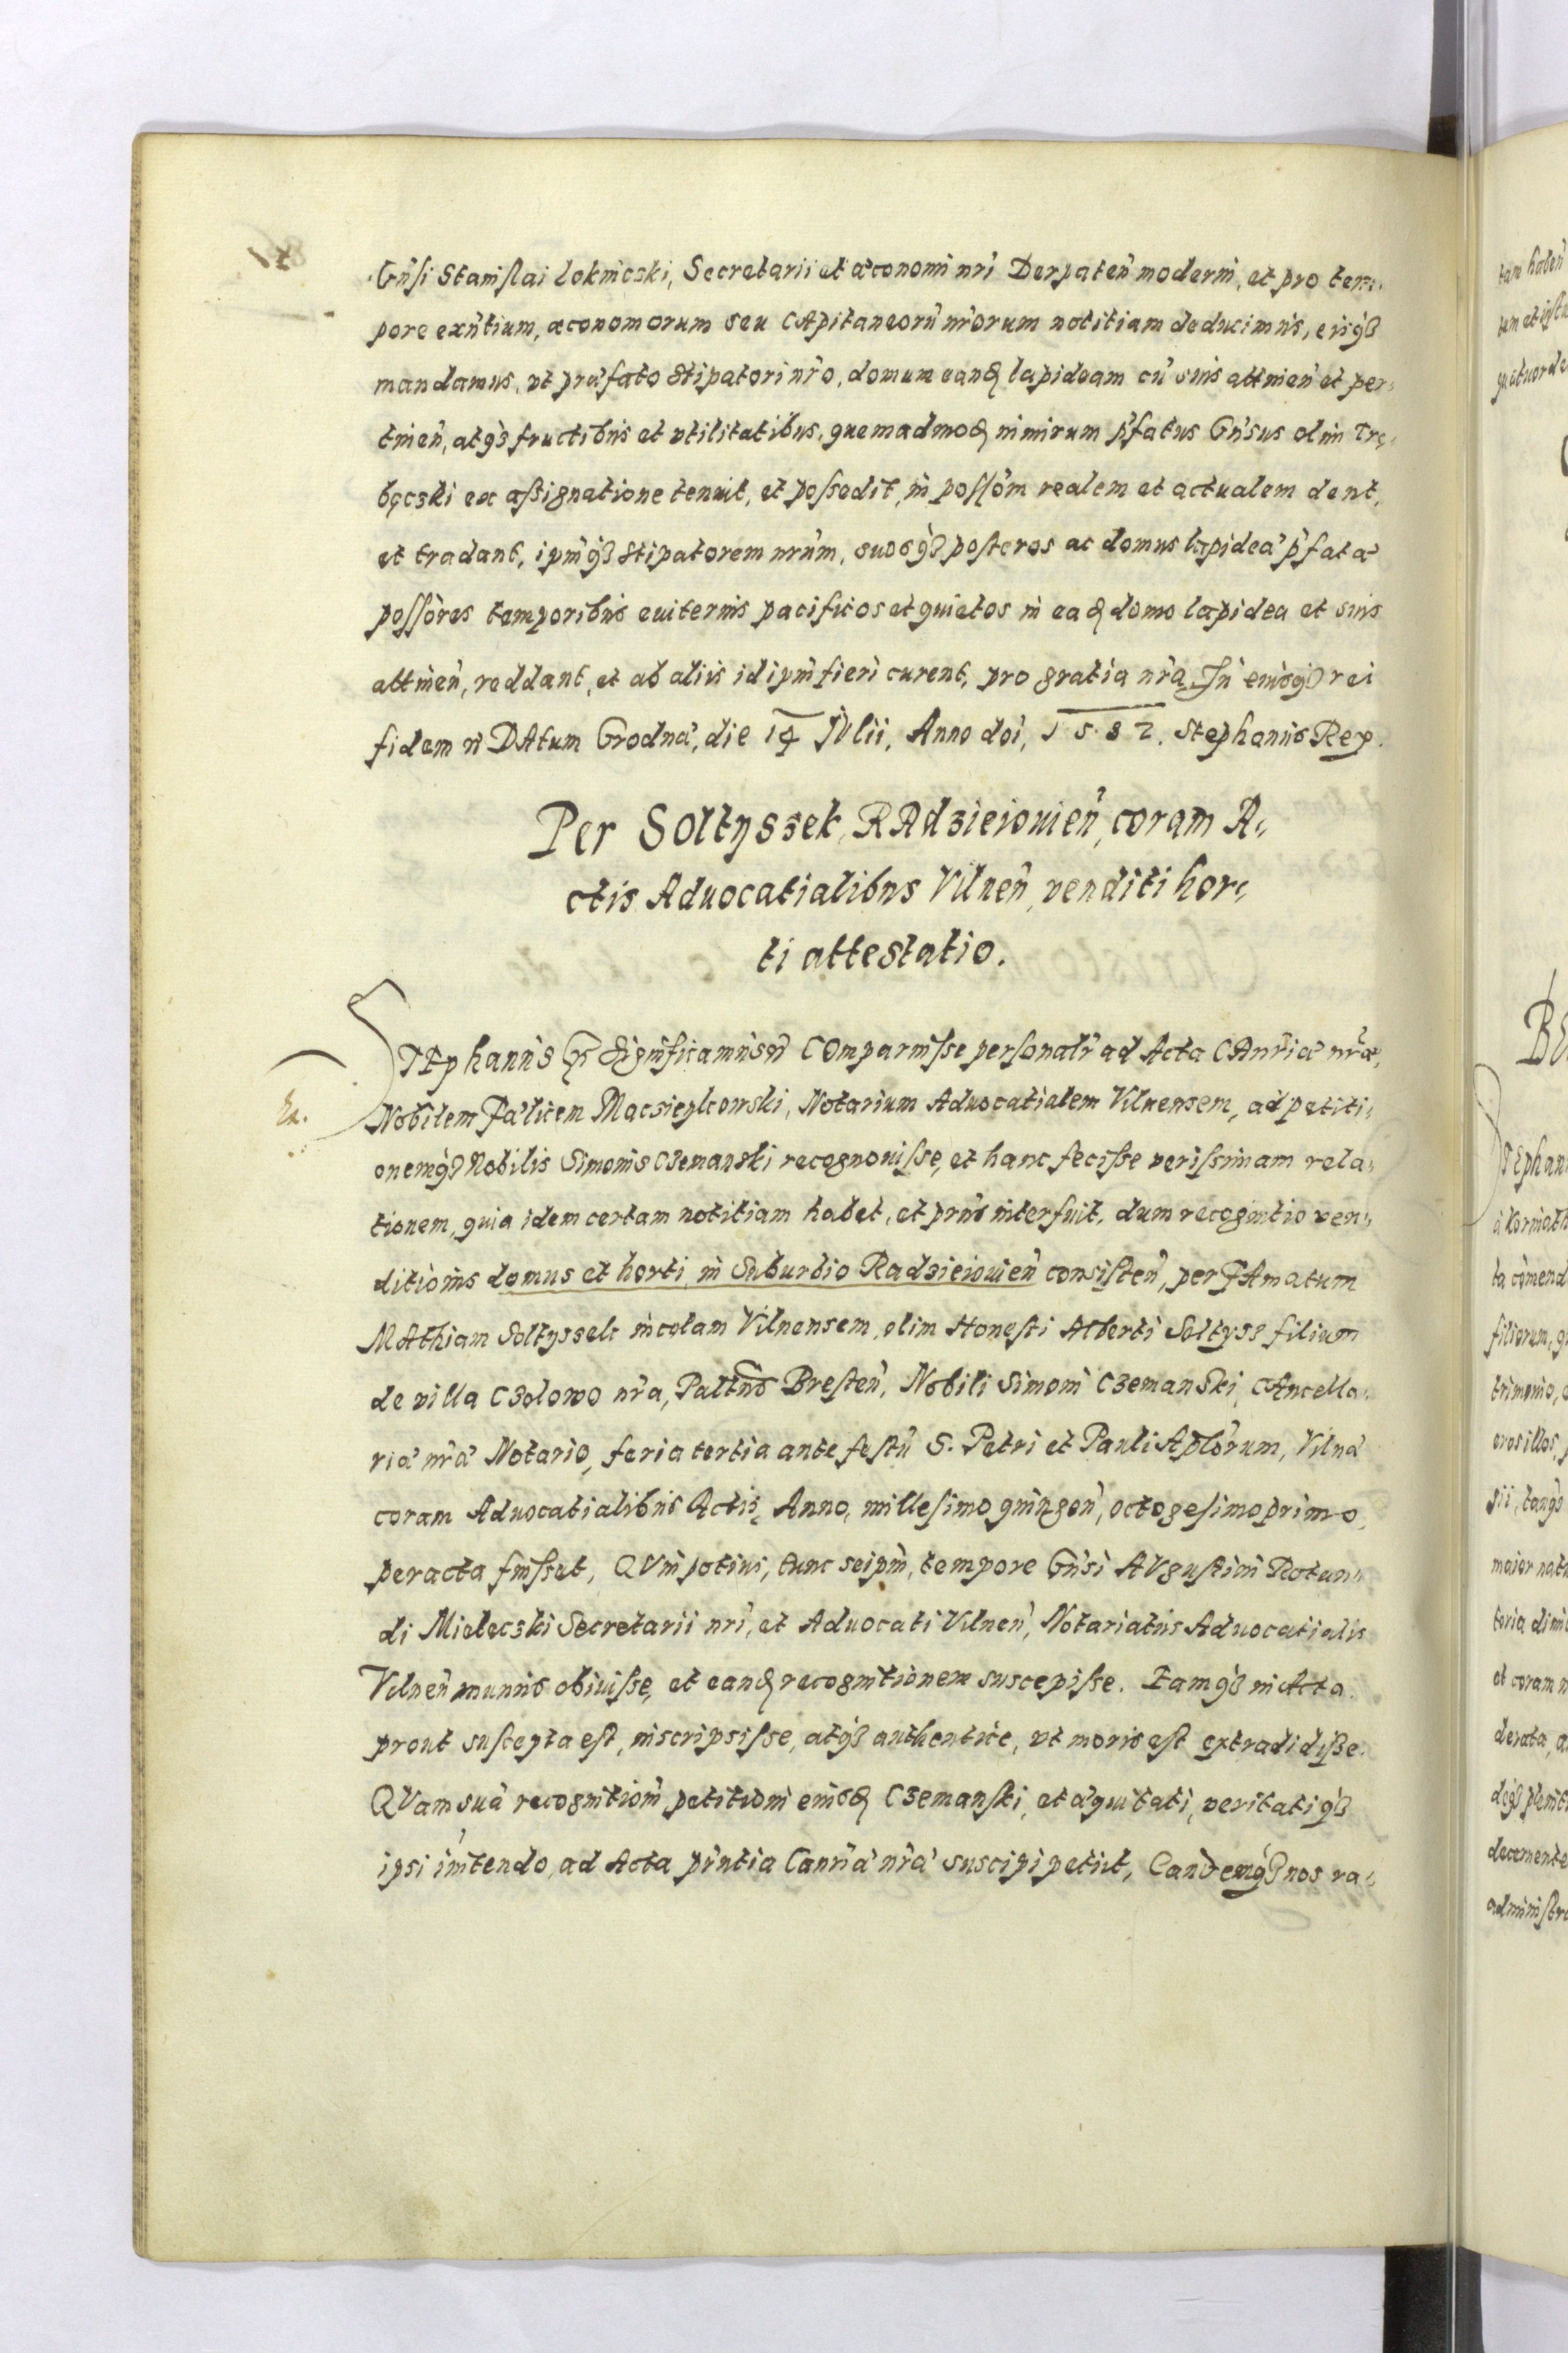 Gnsi Stanislai Loknicski, Secretarii et œconomi nri Derpaten moderni, et pro tem:
pore exntium, œconomorum seu CApitaneorũ nrorum notitiam deducimus, eisq3
mandamus, vt præfato Stipatori nro, domum eandȝ lapideam cũ suis attinen et per:
tinen, atq3 fructibus et vtilitatibus, quemadmodȝ nimirum pfatus Gnsus olim Trę:
bęcski ex assignatione tenuit, et possedit, in possom realem et actualem dent,
et tradant, ipmq3 Stipatorem nrum, suosq3 posteros ac domus lapideæ pfatæ
possores temporibus euiternis pacificos et quietos in eadȝ domo lapidea et suis
attinen, reddant, et ab aliis id ipm fieri curent, pro gratia nra. In cuiusq3 rei
fidem ñ DAtum Grodnæ, die 14 IVlii, Anno doi, 1582. Stephanus Rex.
Per Soltyssek, RAdzieiouien, coram A:
ctis Aduocatialibus Vilnen, venditi hor:
ti attestatio.
STEphanus Significamus ñ COmparuisse personalr ad Acta CAnriæ nræ,
Nobilem Fælicem Macsieylcowski, Notarium Aduocatialem Vilnensem, ad petiti:
onemq3 Nobilis Simonis Czemanski recognouisse, et hanc fecisse verissimam rela:
tionem, quia idem certam notitiam habet, et prius interfuit, dum recognitio ven:
ditionis domus et horti, in Suburbio Radzieiouien consisten, per FAmatum
MAthiam Soltyssek incolam Vilnensem, olim Honesti Alberti Soltyss filium
de villa Czolowo nra, Palttus Bresten, Nobili Simoni Czemanski, CAncella:
riæ nræ Notario, feria tertia ante festũ S. Petri et Pauli Aplorum, Vilnæ
coram Aduocatialibus Actis, Anno, millesimo quingen, octogesimo primo,
peracta fuisset, QVin potius, tunc seipm, tempore Gnsi AVgustini Rotun:
di Mielęcski Secretarii nri, et Aduocati Vilnen, Notariatus Aduocatialis
Vilnen munus obiuisse, et eandȝ recognitionem suscepisse. Eamq3 in Acta
prout suscepta est, inscripsisse, atq3 authentice, vt moris est extradidisse.
QVam suã recognitiom, petitioni eiusdȝ Czemanski, et æquitati, veritatiq3
ipsi initendo, ad Acta pntia Canriæ nræ suscipi petiit, Eandemq3 nos ra: